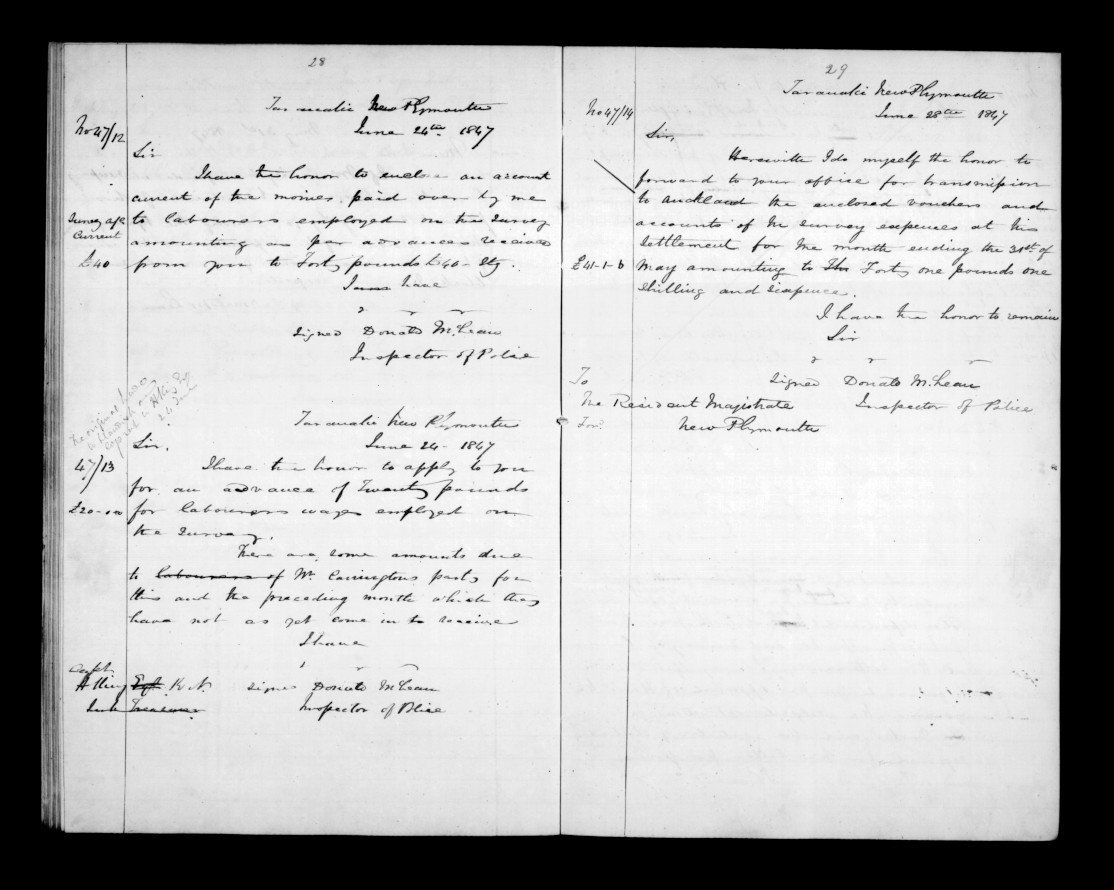 28
Taranaki New Plymouth
No 47/12
June 24th 1847
Sir
I have the honor to enclose an account
current of the monies paid over by me
Survey a/c
Current
to labourers employed on the survey
amounting as per advances received
£40
from you to Forty pounds £40 - Stg.
I have
Signed Donald McLean
Inspector of Police
Taranaki New Plymouth
Sir.
June 24 - 1847
47/13
I have the honor to apply to you
for an advance of Twenty pounds
£20-0-0
for labourers wages employed on
the survey.
There are some amounts due
to labourers of Mr. Carringtons party for
this and the preceding month which they
have not as yet come in to receive
I have
Capt.
H King Esq. R.N.
Signed Donald McLean
Sub Treasurer
Inspector of Police
29
Taranaki New Plymouth
No 47/14
June 28th 1847
Sir,
Herewith I do myself the honor to
forward to your office for transmission
to Auckland the enclosed vouchers and
accounts of the survey expenses at this
Settlement for the month ending the 31st of
£41-1-6
May amounting to Forty one pounds one
shilling and sixpence.
I have the honor to remain
Sir
Signed Donald McLean
Inspector of Police
To
The Resident Magistrate
New Plymouth